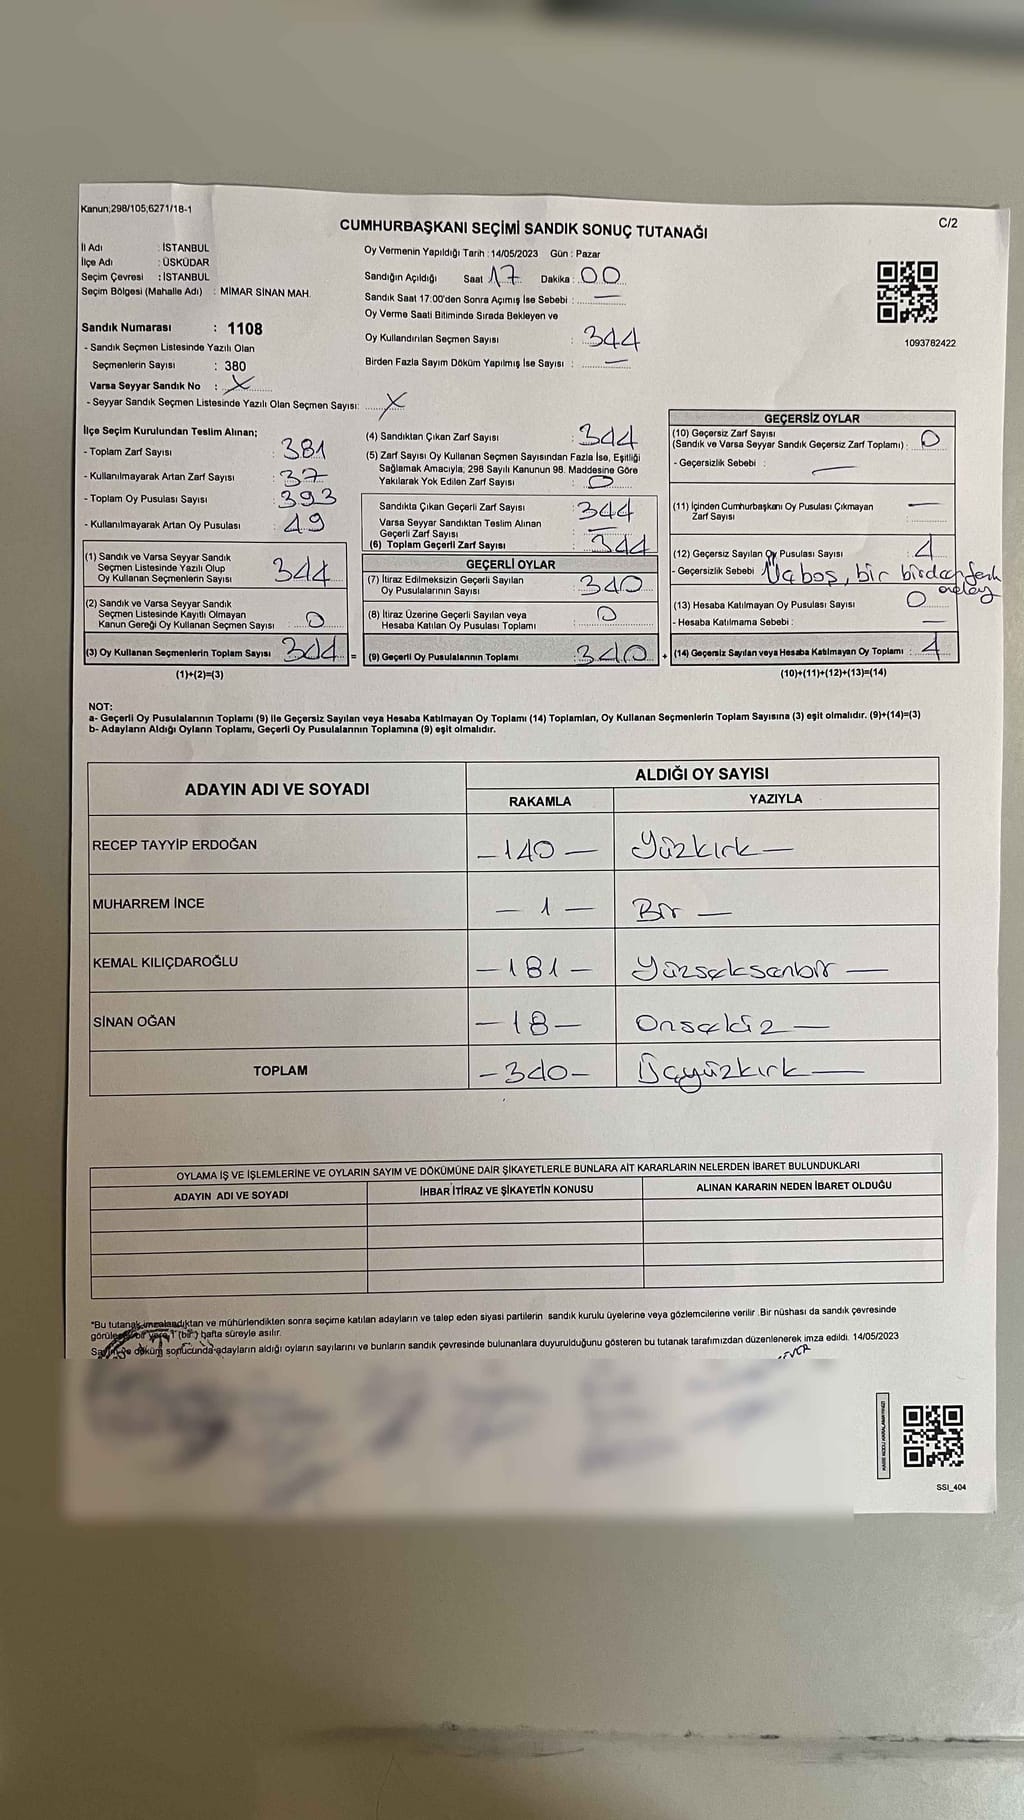 Kanun;298/105,6271/18-1
C/2
CUMHURBAŞKANI SEÇİMİ SANDIK SONUÇ TUTANAĞI
İl Adı : İSTANBUL
İlçe Adı : ÜSKÜDAR
Seçim Çevresi : İSTANBUL
Seçim Bölgesi (Mahalle Adı) : MİMAR SİNAN MAH.
Sandık Numarası : 1108
- Sandık Seçmen Listesinde Yazılı Olan
Seçmenlerin Sayısı : 380
Varsa Seyyar Sandık No : X
- Seyyar Sandık Seçmen Listesinde Yazılı Olan Seçmen Sayısı: X
Oy Vermenin Yapıldığı Tarih : 14/05/2023 Gün : Pazar
Sandığın Açıldığı Saat 17 Dakika : 00
Sandık Saat 17:00'den Sonra Açımış İse Sebebi : —
Oy Verme Saati Bitiminde Sırada Bekleyen ve
Oy Kullandırılan Seçmen Sayısı : 344
Birden Fazla Sayım Döküm Yapılmış İse Sayısı : —
1093782422
İlçe Seçim Kurulundan Teslim Alınan;
- Toplam Zarf Sayısı : 381
- Kullanılmayarak Artan Zarf Sayısı : 37
- Toplam Oy Pusulası Sayısı : 393
- Kullanılmayarak Artan Oy Pusulası : 49
(1) Sandık ve Varsa Seyyar Sandık
Seçmen Listesinde Yazılı Olup
Oy Kullanan Seçmenlerin Sayısı : 344
(2) Sandık ve Varsa Seyyar Sandık
Seçmen Listesinde Kayıtlı Olmayan
Kanun Gereği Oy Kullanan Seçmen Sayısı : 0
(3) Oy Kullanan Seçmenlerin Toplam Sayısı 344 =
(1)+(2)=(3)
(4) Sandıktan Çıkan Zarf Sayısı : 344
(5) Zarf Sayısı Oy Kullanan Seçmen Sayısından Fazla İse, Eşitliği
Sağlamak Amacıyla, 298 Sayılı Kanunun 98. Maddesine Göre
Yakılarak Yok Edilen Zarf Sayısı : 0
Sandıkta Çıkan Geçerli Zarf Sayısı : 344
Varsa Seyyar Sandıktan Teslim Alınan
Geçerli Zarf Sayısı : —
(6) Toplam Geçerli Zarf Sayısı : 344
GEÇERLİ OYLAR
(7) İtiraz Edilmeksizin Geçerli Sayılan
Oy Pusulalarının Sayısı : 340
(8) İtiraz Üzerine Geçerli Sayılan veya
Hesaba Katılan Oy Pusulası Toplamı : 0
(9) Geçerli Oy Pusulalarının Toplamı : 340 +
GEÇERSİZ OYLAR
(10) Geçersiz Zarf Sayısı
(Sandık ve Varsa Seyyar Sandık Geçersiz Zarf Toplamı) : 0
- Geçersizlik Sebebi : —
(11) İçinden Cumhurbaşkanı Oy Pusulası Çıkmayan
Zarf Sayısı : —
(12) Geçersiz Sayılan Oy Pusulası Sayısı : 4
- Geçersizlik Sebebi Üç boş, bir birden
(13) Hesaba Katılmayan Oy Pusulası Sayısı : 0
- Hesaba Katılmama Sebebi : —
(14) Geçersiz Sayılan veya Hesaba Katılmayan Oy Toplamı : 4
(10)+(11)+(12)+(13)=(14)
NOT:
a- Geçerli Oy Pusulalarının Toplamı (9) ile Geçersiz Sayılan veya Hesaba Katılmayan Oy Toplamı (14) Toplamları, Oy Kullanan Seçmenlerin Toplam Sayısına (3) eşit olmalıdır. (9)+(14)=(3)
b- Adayların Aldığı Oyların Toplamı, Geçerli Oy Pusulalarının Toplamına (9) eşit olmalıdır.
ADAYIN ADI VE SOYADI ALDIĞI OY SAYISI
RAKAMLA YAZIYLA
RECEP TAYYİP ERDOĞAN —140— Yüzkırk —
MUHARREM İNCE — 1 — Bir —
KEMAL KILIÇDAROĞLU —181— Yüzseksenbir —
SİNAN OĞAN —18— Onsekiz —
TOPLAM —340— Üçyüzkırk —
OYLAMA İŞ VE İŞLEMLERİNE VE OYLARIN SAYIM VE DÖKÜMÜNE DAİR ŞİKAYETLERLE BUNLARA AİT KARARLARIN NELERDEN İBARET BULUNDUKLARI
ADAYIN ADI VE SOYADI İHBAR İTİRAZ VE ŞİKAYETİN KONUSU ALINAN KARARIN NEDEN İBARET OLDUĞU
*Bu tutanak imzalandıktan ve mühürlendikten sonra seçime katılan adayların ve talep eden siyasi partilerin sandık kurulu üyelerine veya gözlemcilerine verilir. Bir nüshası da sandık çevresinde
bir yere 1 (bir) hafta süreyle asılır.
döküm sonucunda adayların aldığı oyların sayılarını ve bunların sandık çevresinde bulunanlara duyurulduğunu gösteren bu tutanak tarafımızdan düzenlenerek imza edildi. 14/05/2023
SSI_404